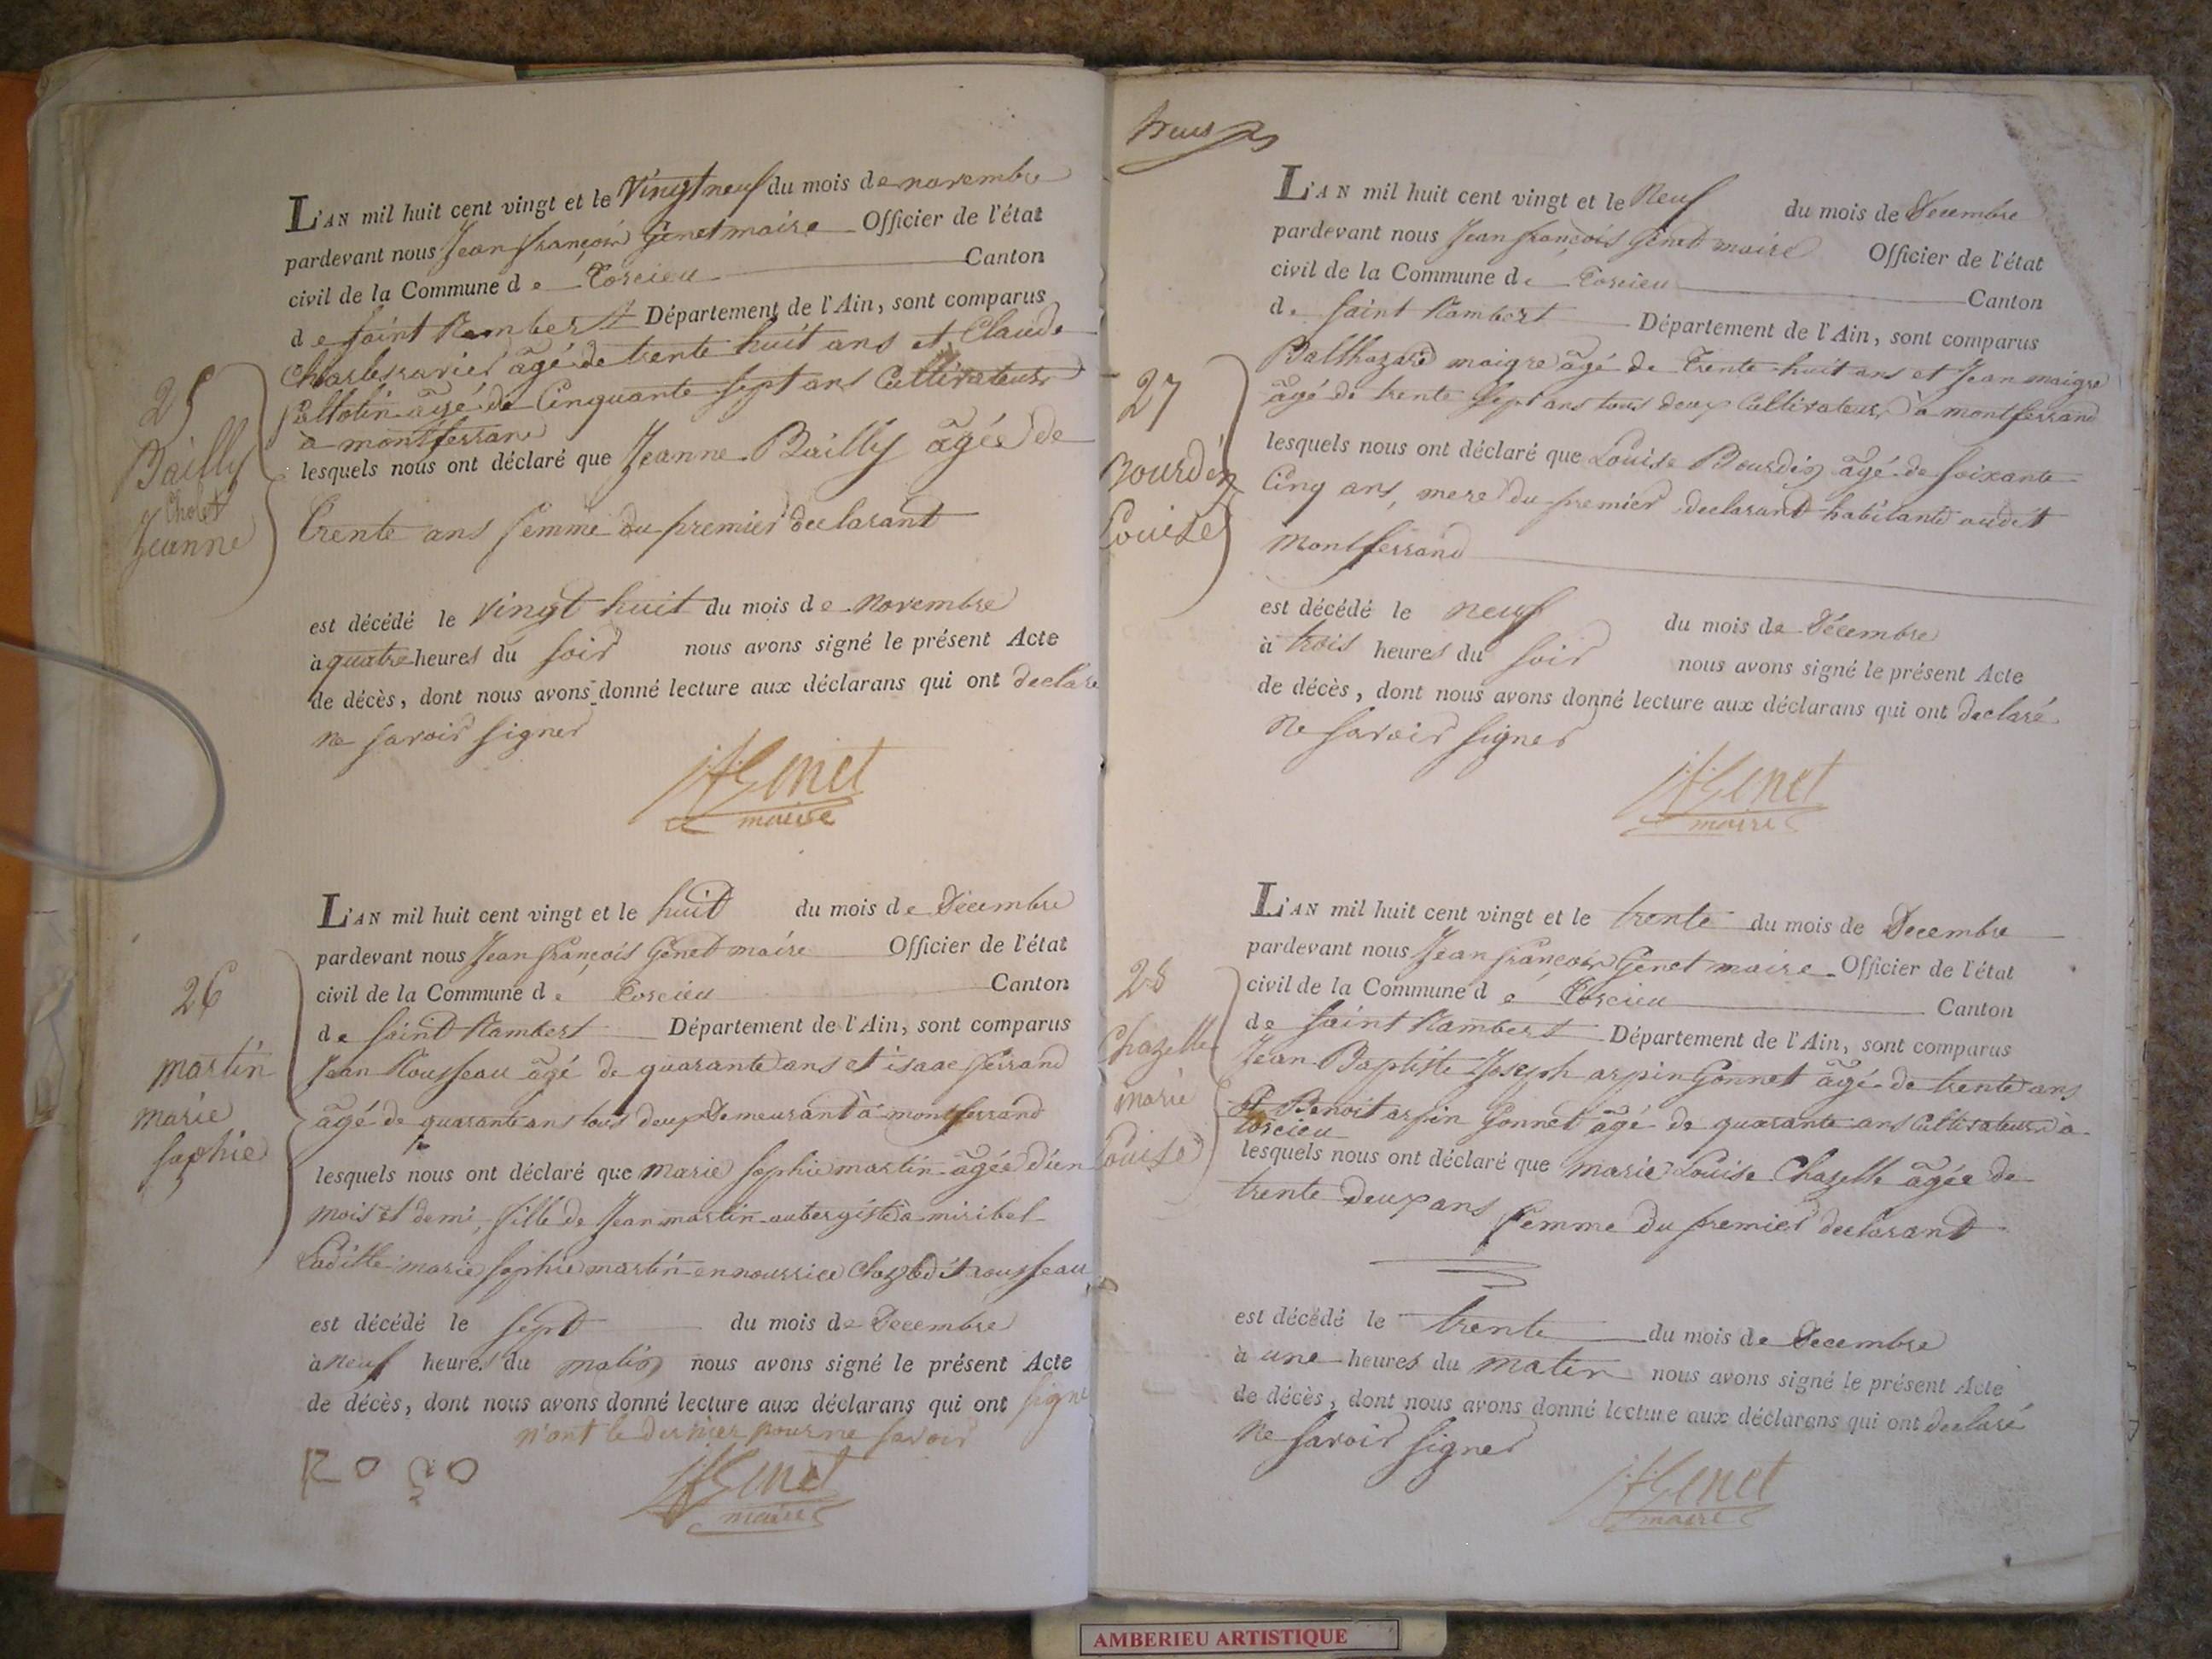 25
Bailly
Cholet
Jeanne
L'AN mil huit cent vingt et le Vingt neuf du mois de novembre
pardevant nous Jean françois Genet maire Officier de l'état
civil de la Commune de Torcieu Canton
de Saint Rambert Département de l'Ain, sont comparus
âgé de trente huit ans et Claude
âgé de Cinquante sept ans Cultivateurs
à montferrand
lesquels nous ont déclaré que Jeanne Bailly âgée de
trente ans femme du premier declarant
est décédé le Vingt huit du mois de Novembre
à quatre heures du soir nous avons signé le présent Acte
de décès, dont nous avons donné lecture aux déclarans qui ont declaré
ne savoir signer
jf Genet
maire
26
martin
marie
sophie
L'AN mil huit cent vingt et le huit du mois de Décembre
pardevant nous Jean françois Genet maire Officier de l'état
civil de la Commune de Torcieu Canton
de Saint Rambert Département de l'Ain, sont comparus
Jean Rousseau âgé de quarante ans et isaac ferrand
âgé de quarante ans tous deux Demeurant à montferrand
lesquels nous ont déclaré que marie sophie martin âgée d'un
mois et demi, fille de Jean martin aubergiste à miribel
Laditte marie sophie martin en nourrice chez ledit rousseau
est décédé le sept du mois de Decembre
à neuf heures du matin nous avons signé le présent Acte
de décès, dont nous avons donné lecture aux déclarans qui ont signé
n'ont le dernier pour ne savoir
jf Genet
maire
27
Bourdin
Louise
L'AN mil huit cent vingt et le Neuf du mois de Decembre
pardevant nous Jean françois Genet maire Officier de l'état
civil de la Commune de Torcieu Canton
de Saint Rambert Département de l'Ain, sont comparus
Balthazard maigre âgé de Trente huit ans et Jean maigre
âgé de trente sept ans tous deux Cultivateurs à montferrand
lesquels nous ont déclaré que Louise Bourdin âgé de soixante
Cinq ans, mere du premier declarant habitante audit
montferrand
est décédé le neuf du mois de Décembre
à trois heures du soir nous avons signé le présent Acte
de décès, dont nous avons donné lecture aux déclarans qui ont declaré
Ne savoir signer
jf Genet
maire
28
Chazelle
marie
Louise
L'AN mil huit cent vingt et le trente du mois de Decembre
pardevant nous Jean françois Genet maire Officier de l'état
civil de la Commune de Torcieu Canton
de Saint Rambert Département de l'Ain, sont comparus
Jean Baptiste Joseph arpin Gonnet âgé de trente ans
et Benoit arpin Gonnet âgé de quarante ans Cultivateurs à
torcieu
lesquels nous ont déclaré que marie Louise Chazelle âgée de
trente deux ans femme du premier declarant
est décédé le trente du mois de Decembre
à une heures du matin nous avons signé le présent Acte
de décès, dont nous avons donné lecture aux déclarans qui ont declaré
Ne savoir signer
jf Genet
maire
AMBERIEU ARTISTIQUE